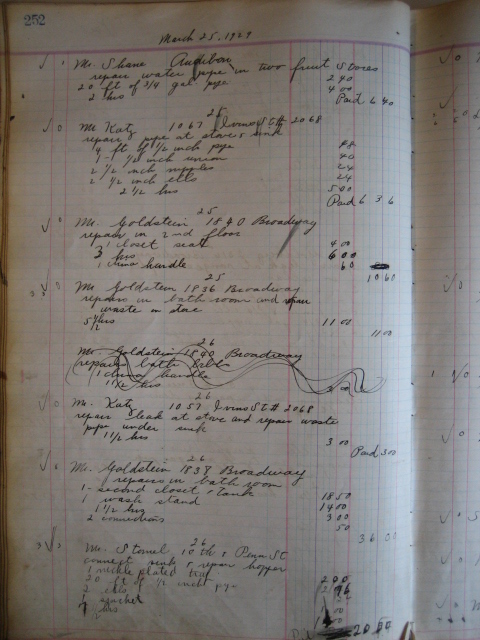 252
March 25, 1929
Mr. Shane Audubon
repair water pipe in two fruit stores
20 ft of 3/4 gal pipe 2 40
2 hrs 4 00
Paid 6 40
26
Mr Katz 1067 Irvins St # 2068
repair pipe at stove & sink
4 ft of 1/2 inch pipe 48
1 - 1/2 inch union 40
2 1/2 inch nipples 24
2 1/2 inch ells 24
2 1/2 hrs 5 00
Paid 6 36
25
Mr. Goldstein 1840 Broadway
repair in 2nd floor
1 closet seat 4 00
3 hrs 6 00
1 china handle 60
10 60
25
Mr. Goldstein 1836 Broadway
repairs in bath room and repair
waste in store
5 1/2 hrs 11 00
11 00
26
Mr. Goldstein 1840 Broadway
repairs bath
1 china handle
1 1/2 hrs 3 00
26
Mr. Katz 1057 Irvins St # 2068
repair leak at stove and repair waste
pipe under sink
1 1/2 hrs 3 00
Paid 3 00
26
Mr. Goldstein 1838 Broadway
repairs in bath room
1 - second closet & tank 18 50
1 wash stand 14 00
1 1/2 hrs 3 00
2 connections 50
36 00
26
Mr. 10th & Penn St
connect sink & repair hopper
1 nickle plated trap 2 00
20 ft of 1/2 inch pipe
2 ells
1
hrs
20 80